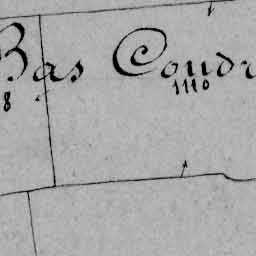 Bas Coudr
8 1110